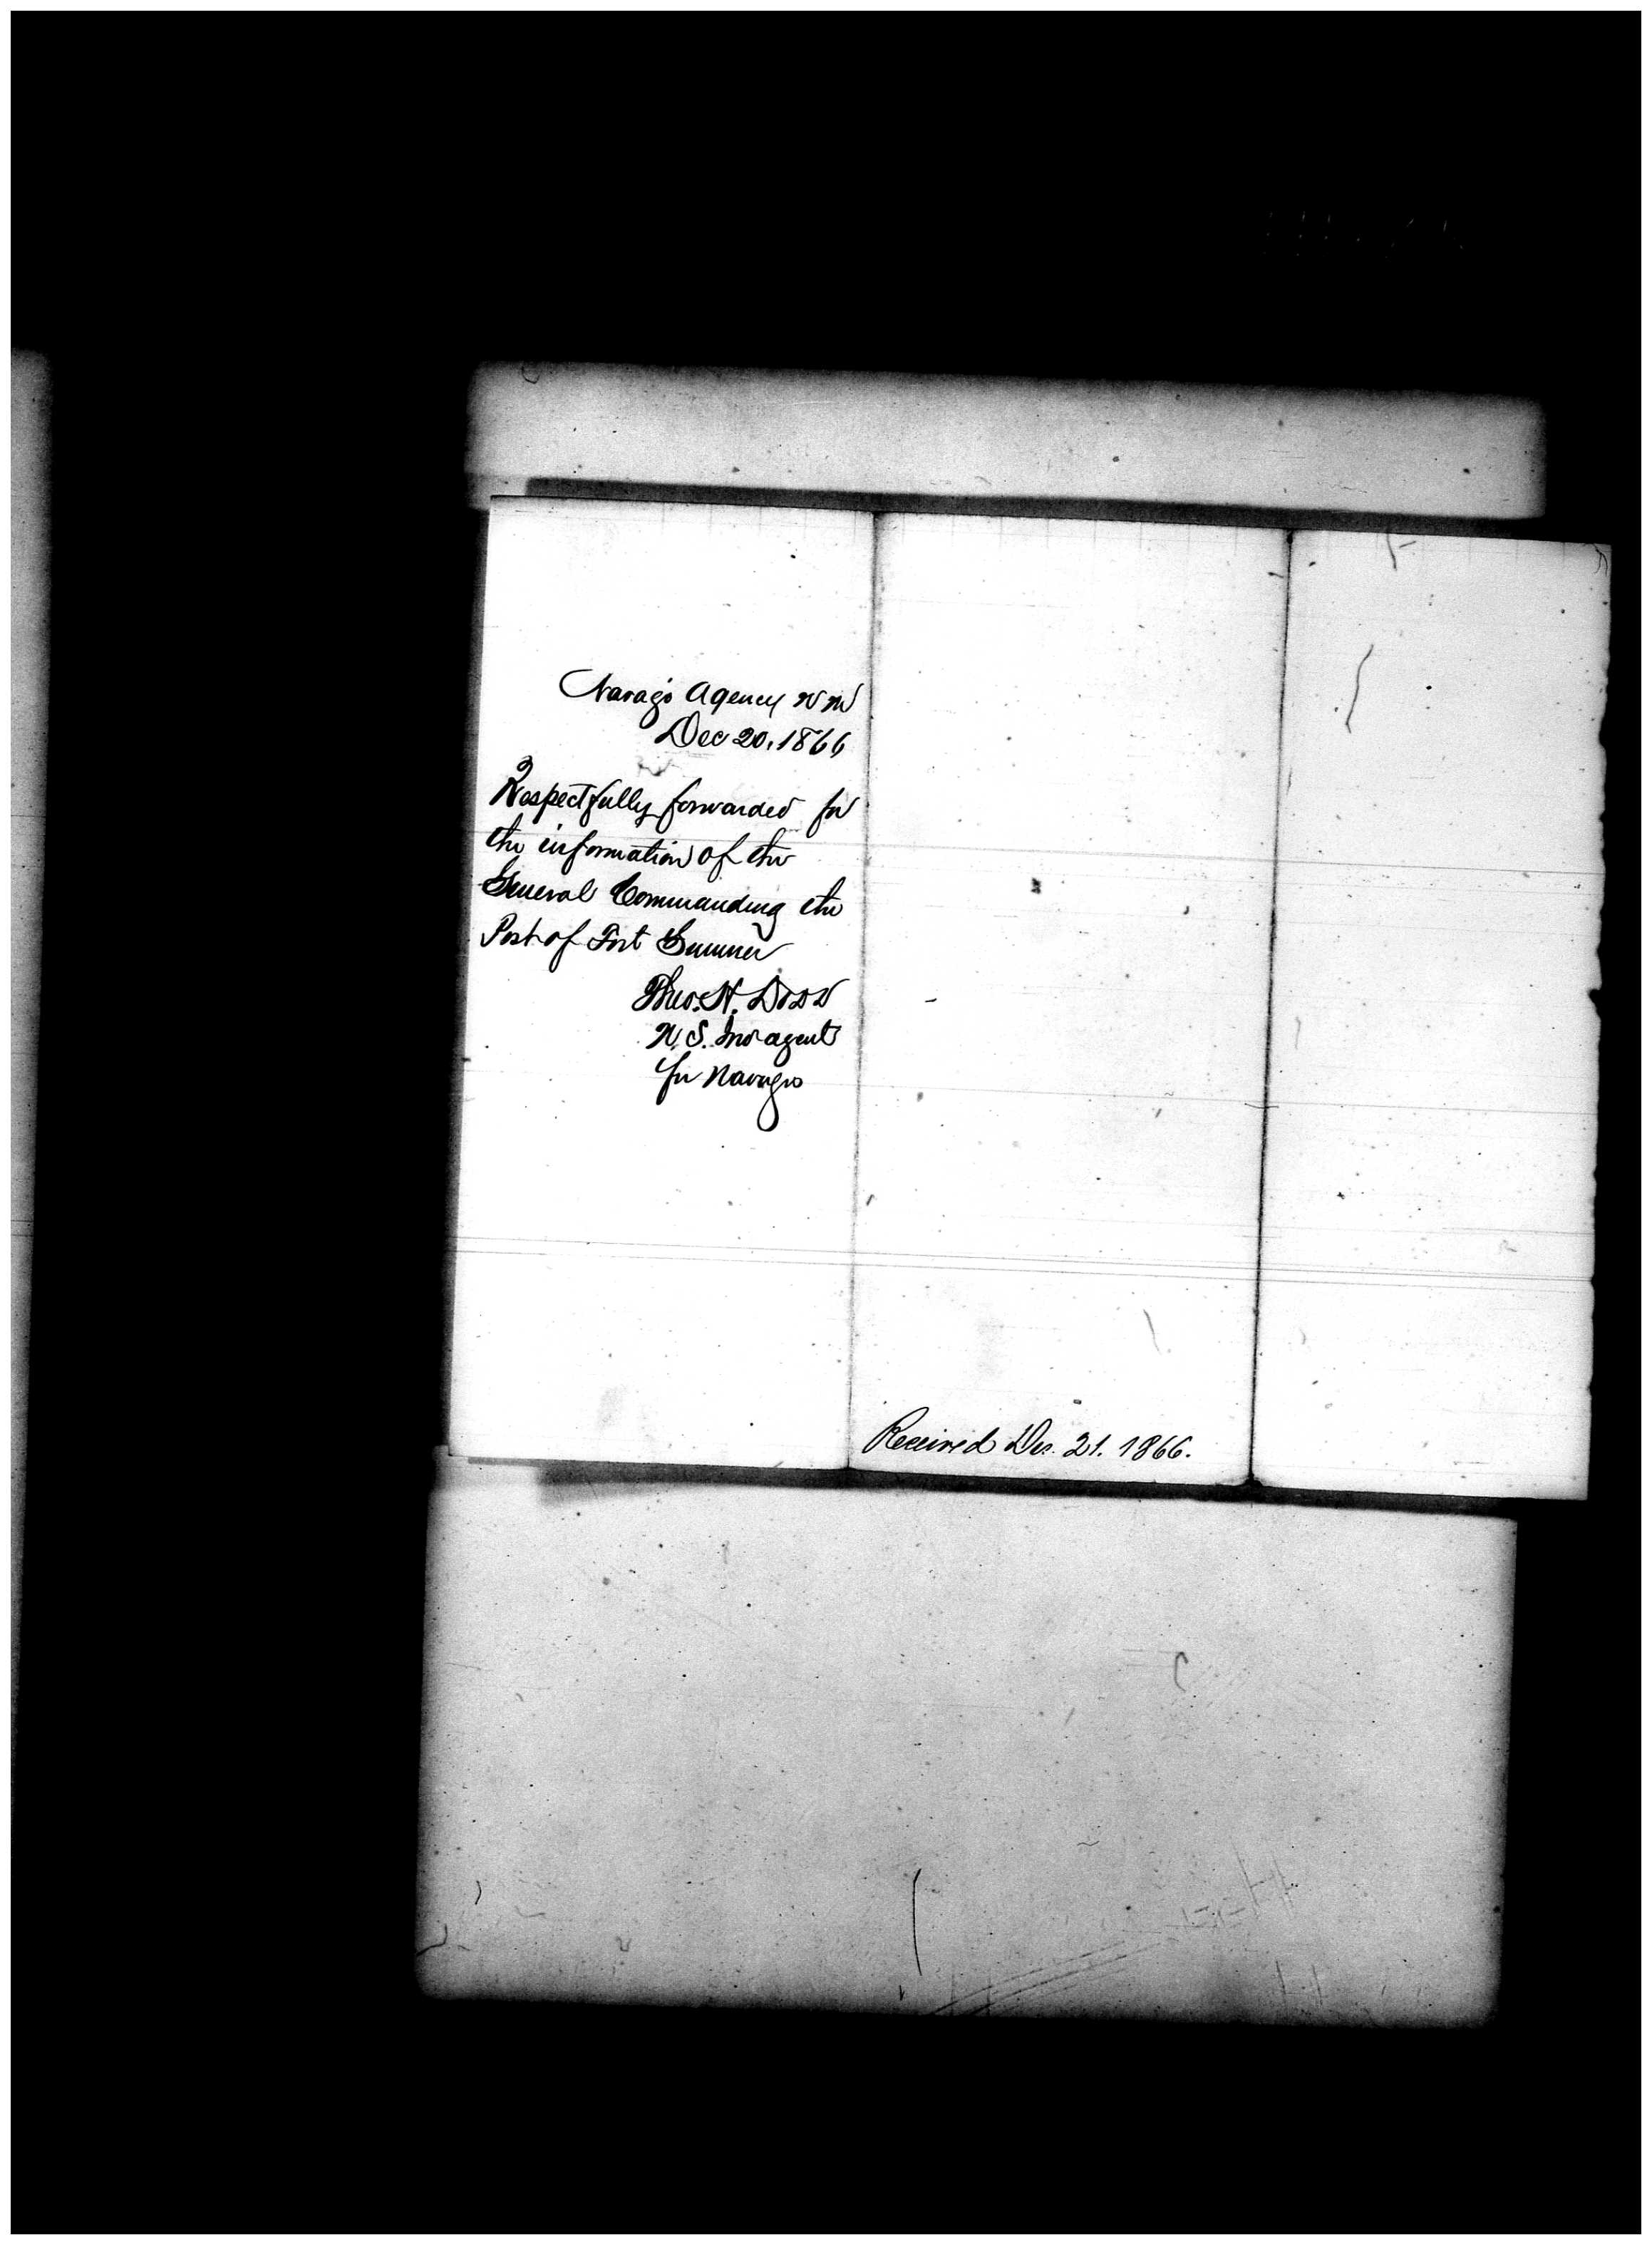 Navajo Agency N M
Dec 20, 1866
Respectfully forwarded for
the information of the
General Commanding the
Post of Fort Sumner
Theo. H. Dodd
U.S. Ind agent
for Navajo
Received Dec. 21. 1866.